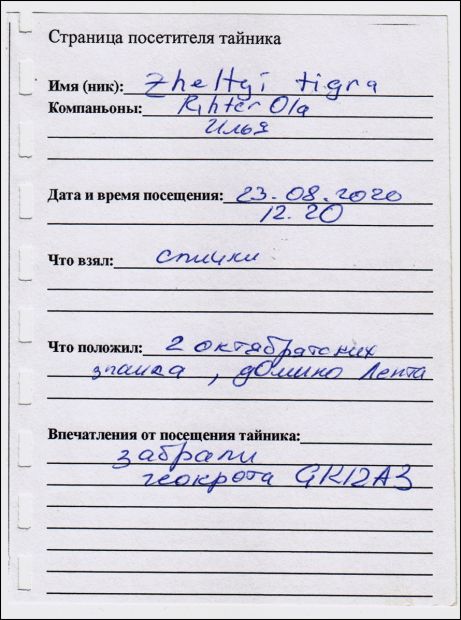 Страница посетителя тайника
Имя (ник): Zheltyi tigra
Компаньоны: Rihter Ola
Илья
Дата и время посещения: 23.08.2020
12.20
Что взял: спички
Что положил: 2 октябратских
значка, домино Лента
Впечатления от посещения тайника:
забрали
геокрота GK12A3